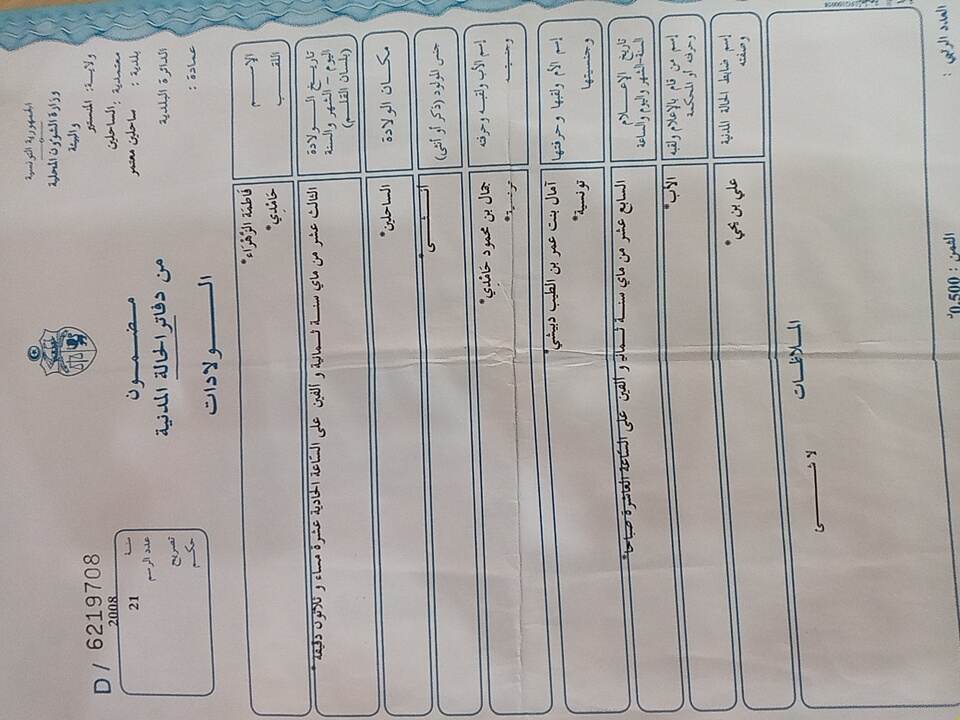 الجمهورية التونسية
وزارة الشؤون المحلية
والبيئة
ولاية: المنستير
معتمدية: الساحلين
بلدية: ساحلين معتمر
الدائرة البلدية
عمادة:
D / 6219708
2008 سنة
21 عدد الرسم
تصريح
حكم
مضمون
من دفاتر الحالة المدنية
الولادات
الاسم
فاطمة الزهراء*
اللقب
حامدي*
تاريخ الولادة
اليوم - الشهر والسنة
(بلسان القلم)
الثالث عشر من ماي سنة ثمانية و ألفين على الساعة الحادية عشرة مساء و ثلاثون دقيقة*
مكان الولادة
الساحلين*
جنس المولود (ذكر أو أنثى)
أنثى*
إسم الأب ولقبه وحرفته
جمال بن محمود حامدي*
وجنسيته
تونسية*
إسم الأم ولقبها وحرفتها
آمال بنت عمر بن الطيب دبيشي*
وجنسيتها
تونسية*
تاريخ الإعلام
السنة-الشهر واليوم والساعة
السابع عشر من ماي سنة ثمانية و ألفين على الساعة العاشرة صباحا*
إسم من قام بالإعلام ولقبه
وحرفته أو المحكمة
الأب*
إسم ضابط الحالة المدنية
وصفته
علي بن يحي*
الملاحظات
لا شيئ
العدد الرتبي :
الثمن : 0,500د